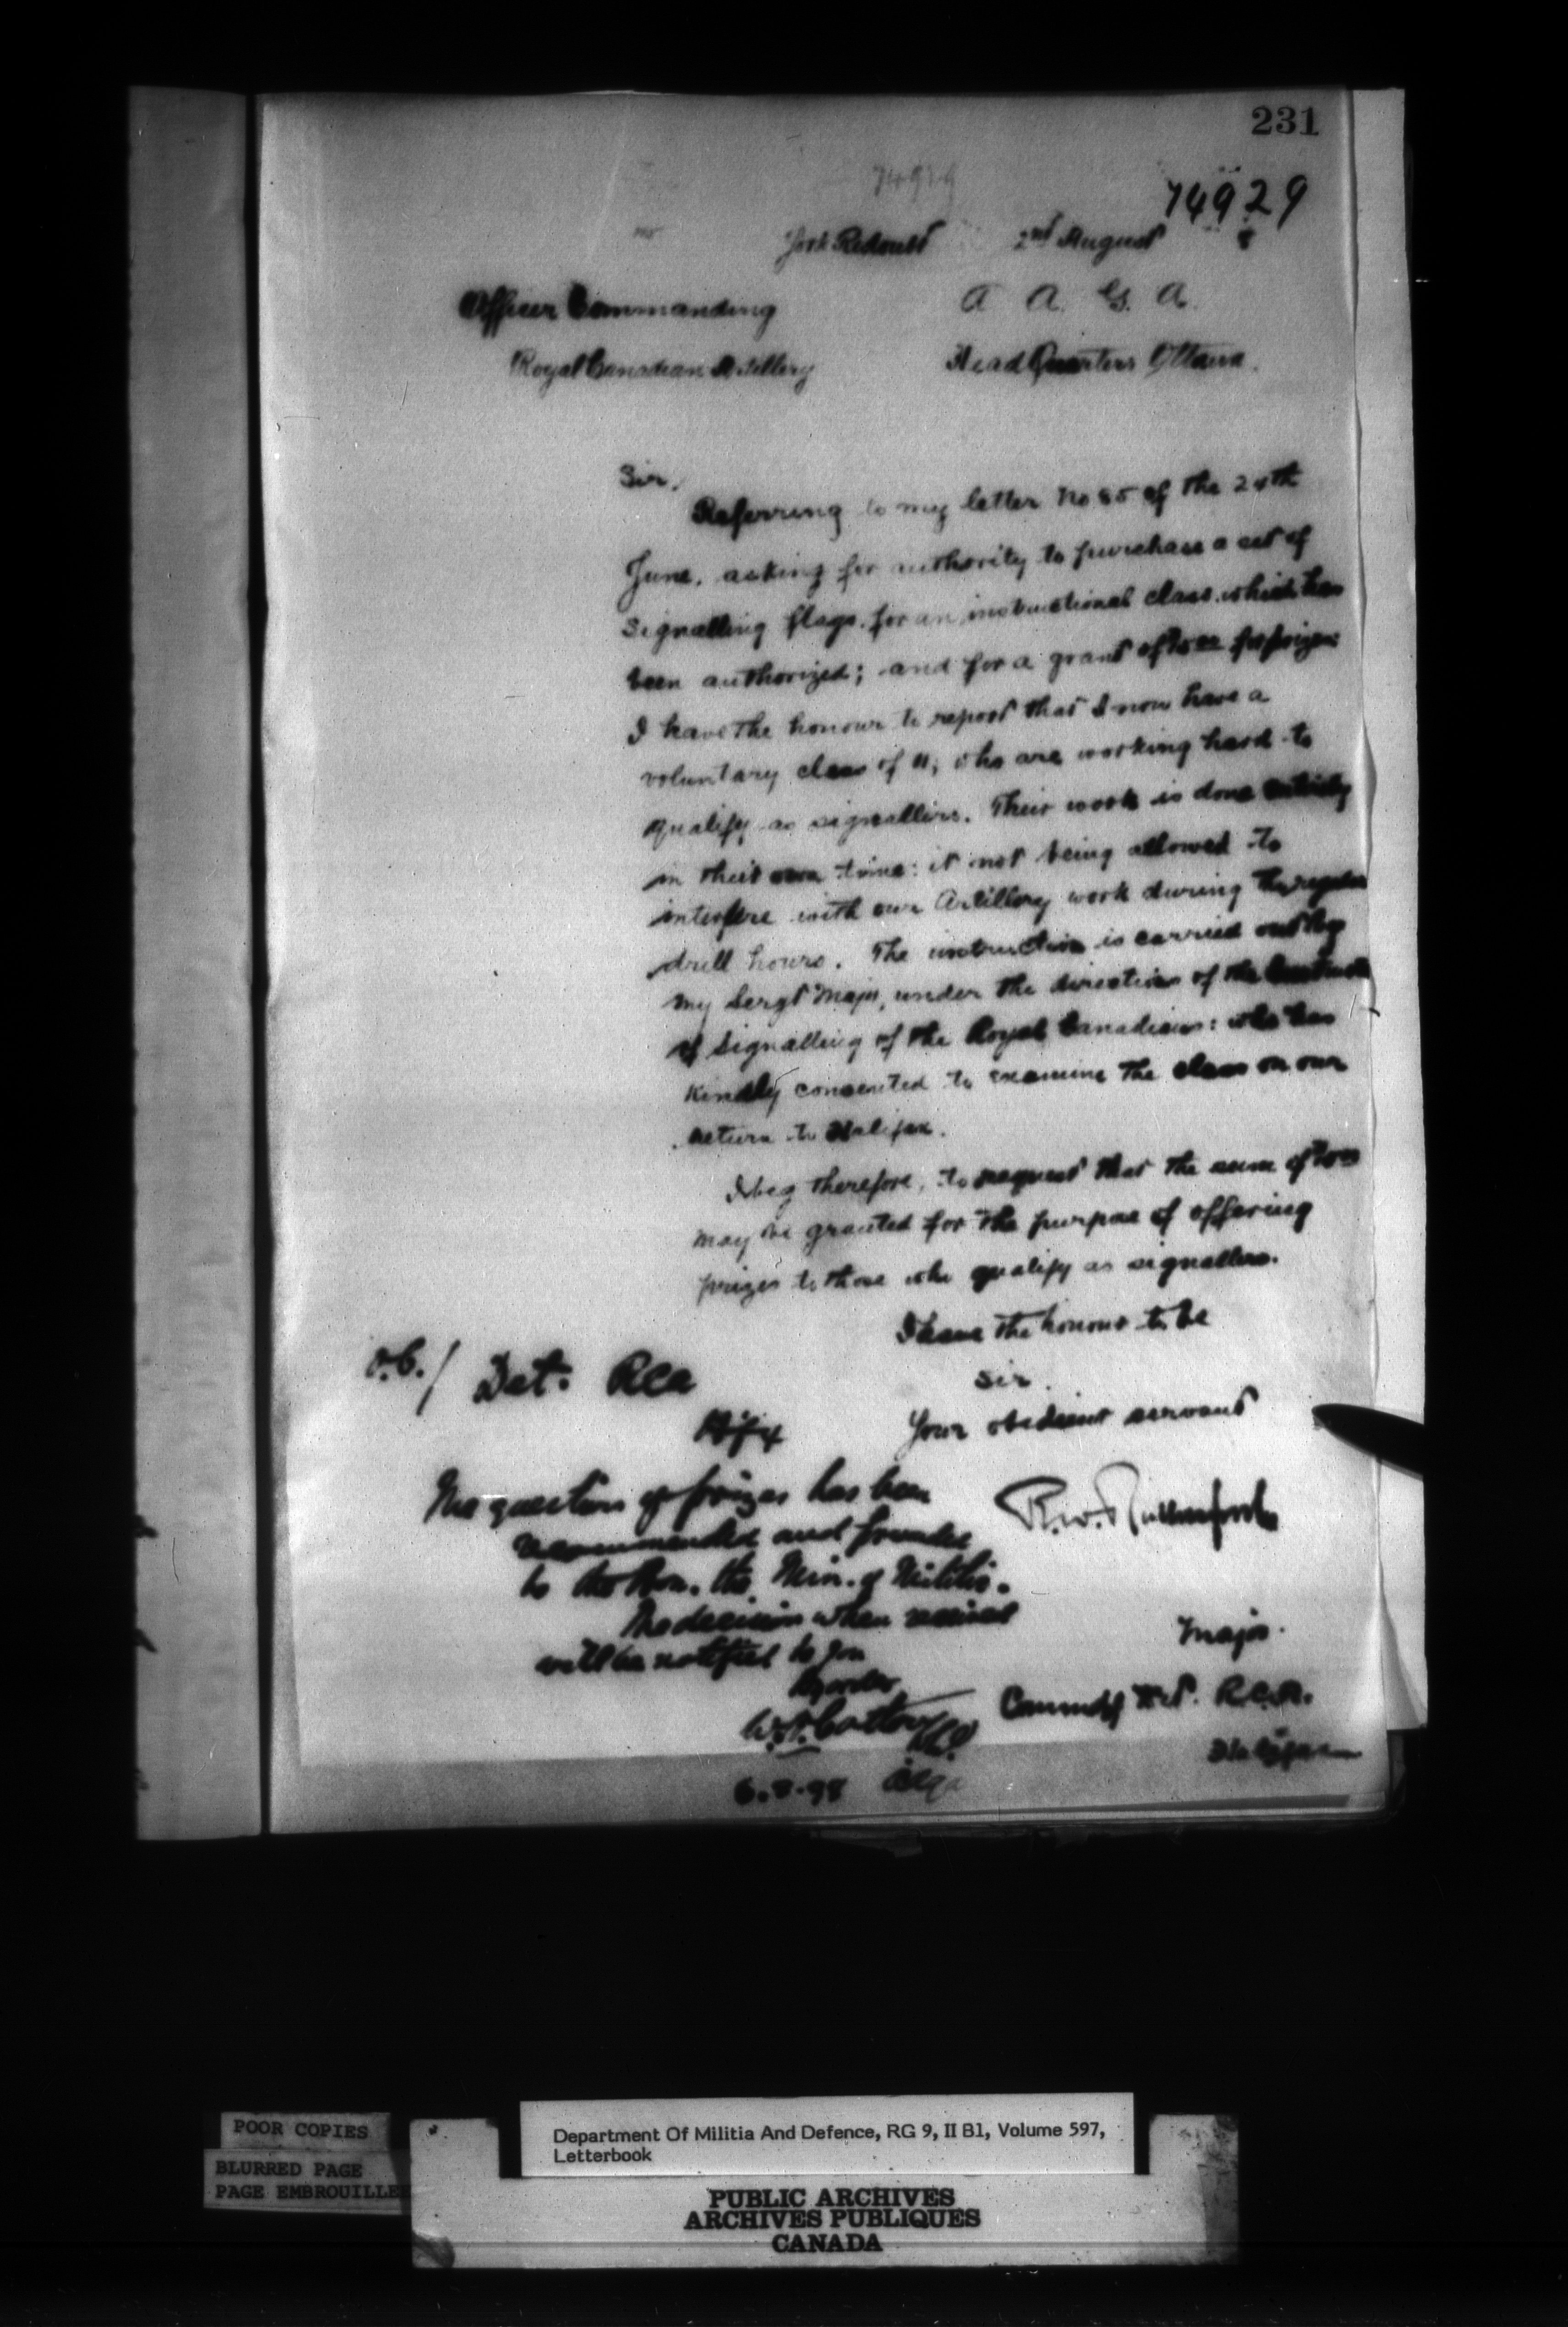 231
74929
74929
York Redoubt 2nd August 8
Officer Commanding
Royal Canadian Artillery
A. A. G. A.
Head Quarters Ottawa.
Sir,
Referring to my letter No 85 of the 24th
June, asking for authority to purchase a set of
signalling flags, for an instructional class, which has
been authorized; and for a grant of for prizes
I have the honour to report that I now have a
voluntary class of 11; who are working hard to
qualify as signallers. Their work is done entirely
in their own time: it not being allowed to
interfere with our Artillery work during the regular
drill hours. The instruction is carried out by
my Sergt Major, under the direction of the Instructor
of Signalling of the Royal Canadians: who has
kindly consented to examine the class on our
return to Halifax.
I beg therefore, to request that the sum of
may be granted for the purpose of offering
prizes to those who qualify as signallers.
I have the honour to be
Sir.
Your obedient servant
R.W. Rutherford
Major.
Commdg Det. R.C.A.
Halifax
O.C./ Det. RCA
Hfx
The question of prizes has been
recommended and forwarded
to the Hon. the Min. of Militia.
The decision when received
will be notified to you
By order
6.8.98
POOR COPIES
BLURRED PAGE
PAGE EMBROUILLE
Department Of Militia And Defence, RG 9, II B1, Volume 597,
Letterbook
PUBLIC ARCHIVES
ARCHIVES PUBLIQUES
CANADA